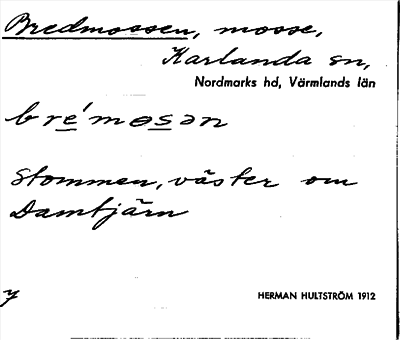 Bredmossen, mosse,
Karlanda sn,
Nordmarks hd, Värmlands län
bre̲´mɵs̲ən
Stommen, väster om
Damtjärn
y
HERMAN HULTSTRÖM 1912